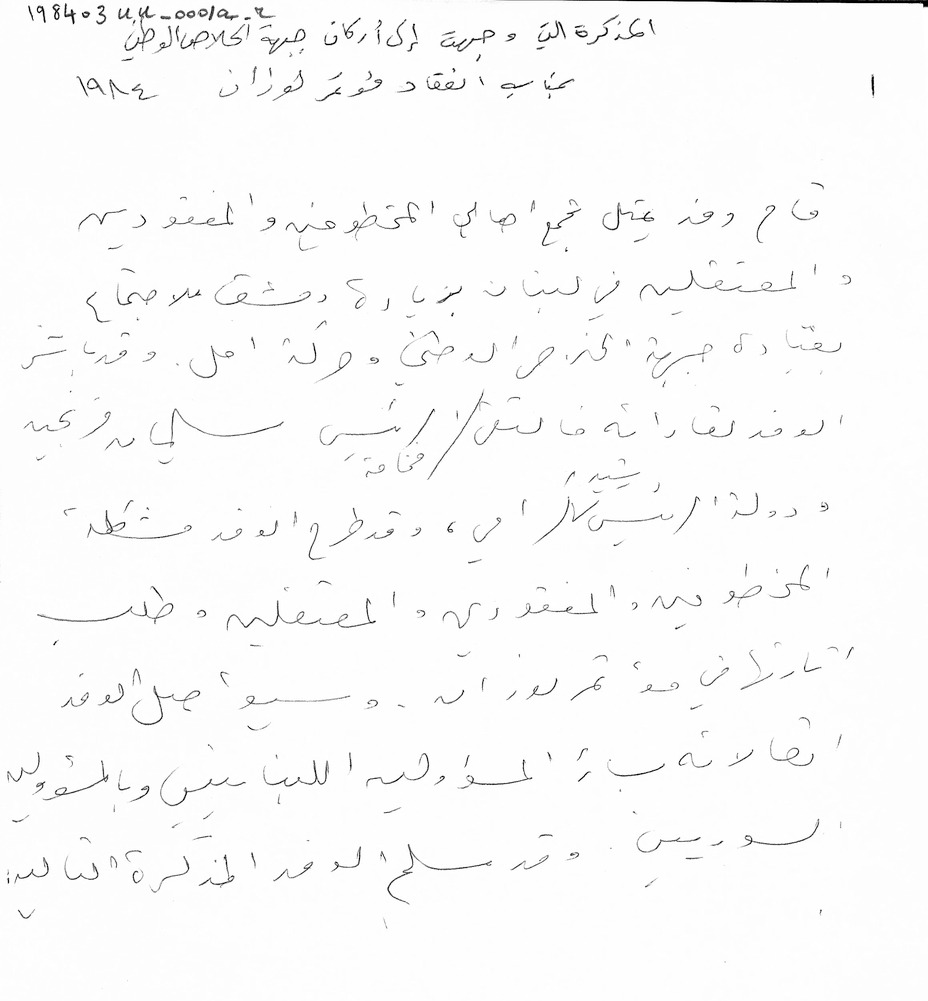 198403 UU_0001a_2
المذكرة التي وجهت إلى أركان جبهة الخلاص الوطني
بمناسبة انعقاد مؤتمر لوزان ١٩٨٤
١
قام وفد يمثل تجمع اهالي المخطوفين والمفقودين
والمعتقلين في لبنان بزيارة دمشق للاجتماع
بقيادة جبهة الخلاص الوطني وحركة امل. وقد باشر
الوفد لقاءاته فالتقى فخامة الرئيس سليمان فرنجيه
ودولة الرئيس رشيد كرامي، وقد طرح الوفد مشكلة
المخطوفين والمفقودين والمعتقلين وطلب
اثارتها في مؤتمر لوزان. وسيواصل الوفد
اتصالاته بسائر المسؤولين اللبنانيين وبالمسؤولين
السوريين. وقد سلم الوفد المذكرة التالية: